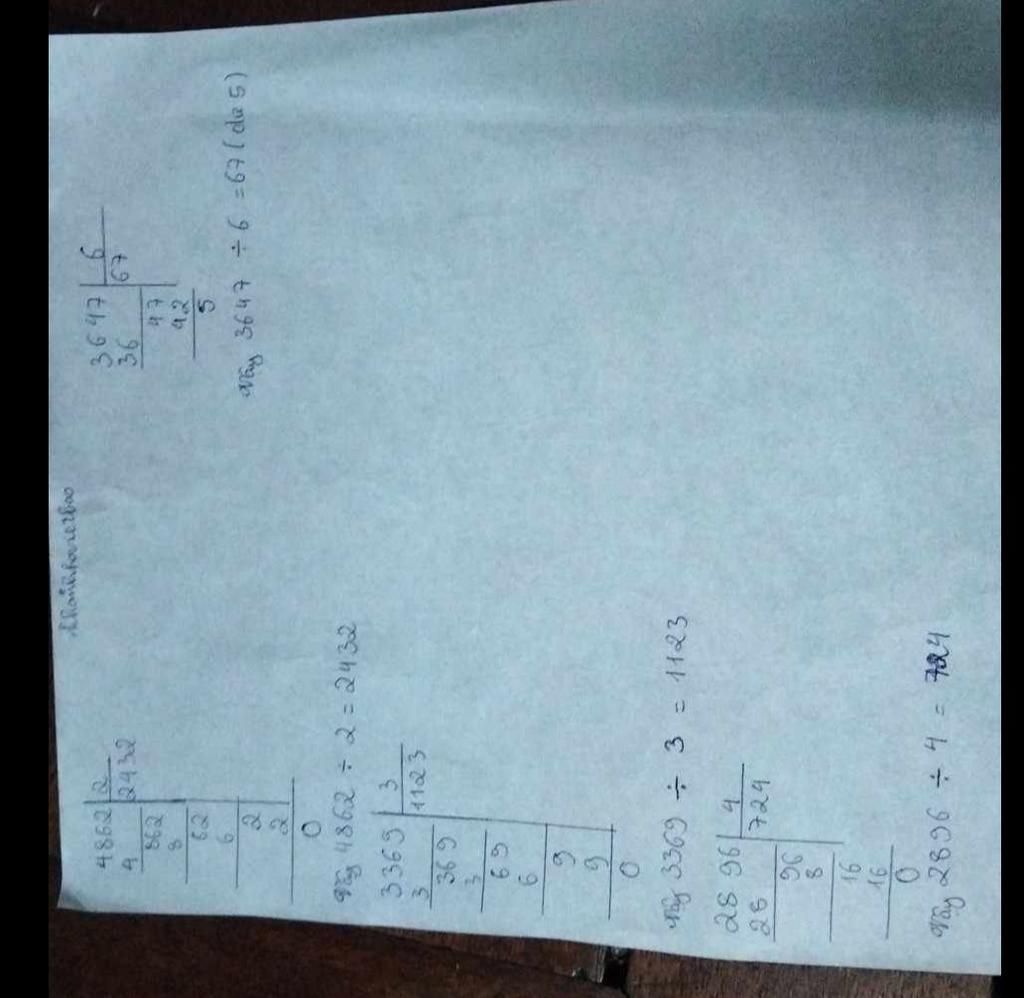 4862 2
4 2432
862
8
62
6
2
2
0
Vậy 4862 ÷ 2 = 2432
3369 3
3 1123
369
3
69
6
9
9
0
Vậy 3369 ÷ 3 = 1123
28 96 4
28 724
96
8
16
16
0
Vậy 2896 ÷ 4 = 724
3647 6
36 67
47
42
5
Vậy 3647 ÷ 6 = 67 (dư 5)